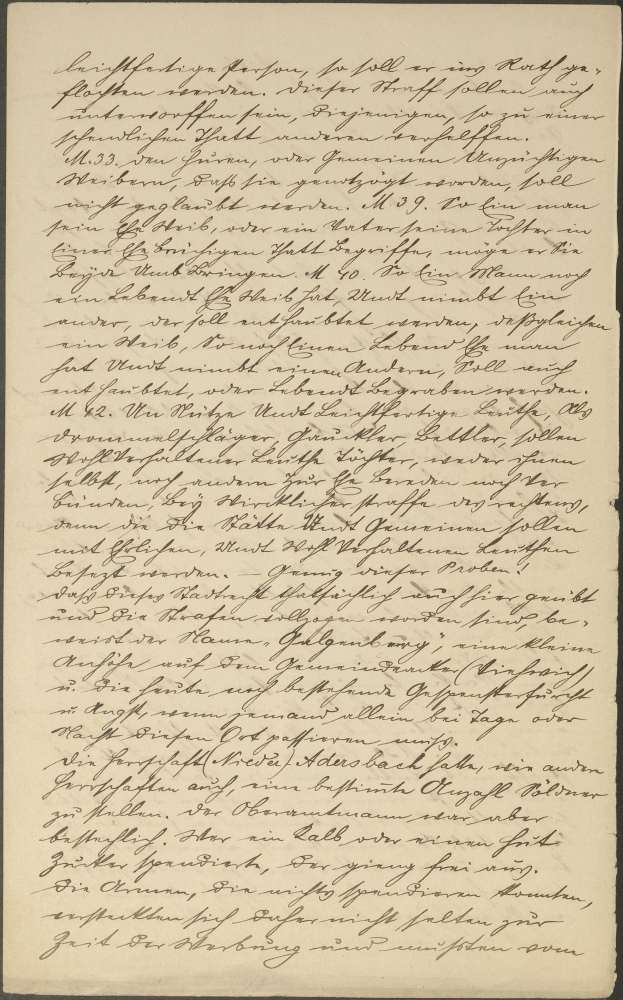 leichtfertige Person, so soll er ins Rath ge-
flochten werden. Dieser Straff sollen auch
unterworffen sein, Diejenigen, so zu einer
schendlichen Thatt anderen verhelffen.
M. 33. den Huren, oder Gemeinen Unzüchtigen
Weibern, daß sie genotzögt worden, soll
nicht geglaubt werden. M 39. So Ein man
sein Ehe Weib, oder ein Vater seine Tochter in
Einer Ehe brüchigen Thatt Begriffe, möge er Sie
Beyde Umb Bringen. M 40. So Ein Mann noch
ein Lebendt Ehe Weib hat, Undt nimbt Ein
ander, der soll enthaubtet werden, deßgleichen
ein Weib, So noch Einen Lebend Ehe man
hat Undt nimbt einen Andern, Soll auch
enthaubtet, oder Lebendt Begraben werden.
M 42. Un Nütze Undt Leichtfertige Leuthe, Als
Drommelschläger, Gauckler, Bettler, sollen
Wohl Verhaltener Leuthe Töchter, weder ihnen
selbst, noch andern Zur Ehe Bereden noch Ver
bünden, Bey Wircklicher straffe des rechtens,
denn die Die Stätte Undt Gemeinen sollen
mit Ehrlichen, Undt Wohl Verhaltenen Leuthen
Besezt werden. — Genug dieser Proben!
Daß dieses Stadtrecht thatsächlich auch hier geübt
und die Strafen vollzogen worden sind, be-
weist der Name „Galgenberg", eine kleine
Anhöhe auf dem Gemeindeacker (Viehweich)
u. die heute noch bestehende Gespensterfurcht
u. Angst, wenn jemand allein bei Tage oder
Nacht diesen Ort passieren muß.
Die Herrschaft (Nieder) Adersbach hatte, wie andere
Herrschaften auch, eine bestimte Anzahl Söldner
zu stellen. Der Oberamtmann war aber
bestechlich. Wer ein Kalb oder einen Hut
Zucker spendierte, der gieng frei aus.
Die Armen, die nichts spendieren konnten,
versteckten sich daher nicht selten zur
Zeit der Werbung und mußten vom